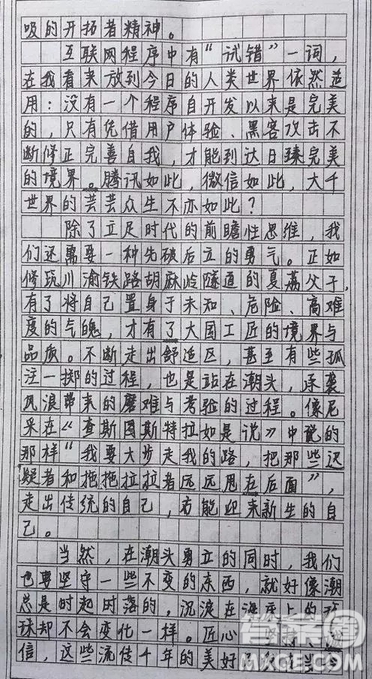 吸的开拓者精神。
互联网程序中有“试错”一词，
在我看来放到今日的人类世界依然适
用：没有一个程序自开发以来是完美
的，只有凭借用户体验、黑客攻击不
断修正完善自我，才能到达日臻完美
的境界。腾讯如此，微信如此，大千
世界的芸芸众生不亦如此？
除了立足时代的前瞻性思维，我
们还需要一种先破后立的勇气。正如
修筑川渝铁路胡麻岭隧道的夏荔父子，
有了将自己置身于未知、危险、高难
度的气魄，才有了大国工匠的境界与
品质。不断走出舒适区，甚至有些孤
注一掷的过程，也是站在潮头，承袭
风浪带来的磨难与考验的过程。像尼
采在《查斯图斯特拉如是说》中说的
那样“我要大步走我的路，把那些迟
疑者和拖拖拉拉者远远甩在后面”，
走出传统的自己，方能迎来新生的自
己。
当然，在潮头勇立的同时，我们
也要坚守一些不变的东西，就好像潮
总是时起时落的，沉淀在海底上的
珠却不会变化一样。匠心
信，这些流传千年的美好
答案圈
MXQE.COM